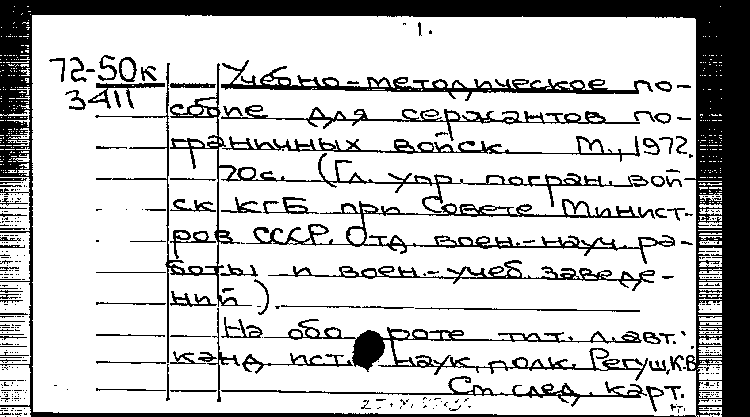 1.
72-50к
3411
Учебно-методическое по-
собие для сержантов по-
граничных войск. М., 1972.
70с. (Гл. упр. погран. вой-
ск КГБ при Совете Минист-
ров СССР. Отд. воен.-науч. ра-
боты и воен.-учеб. заведе-
ний).
На обо роте тит. л. авт.:
канд. ист. наук, полк. Регуш, К.В
См. след. карт.